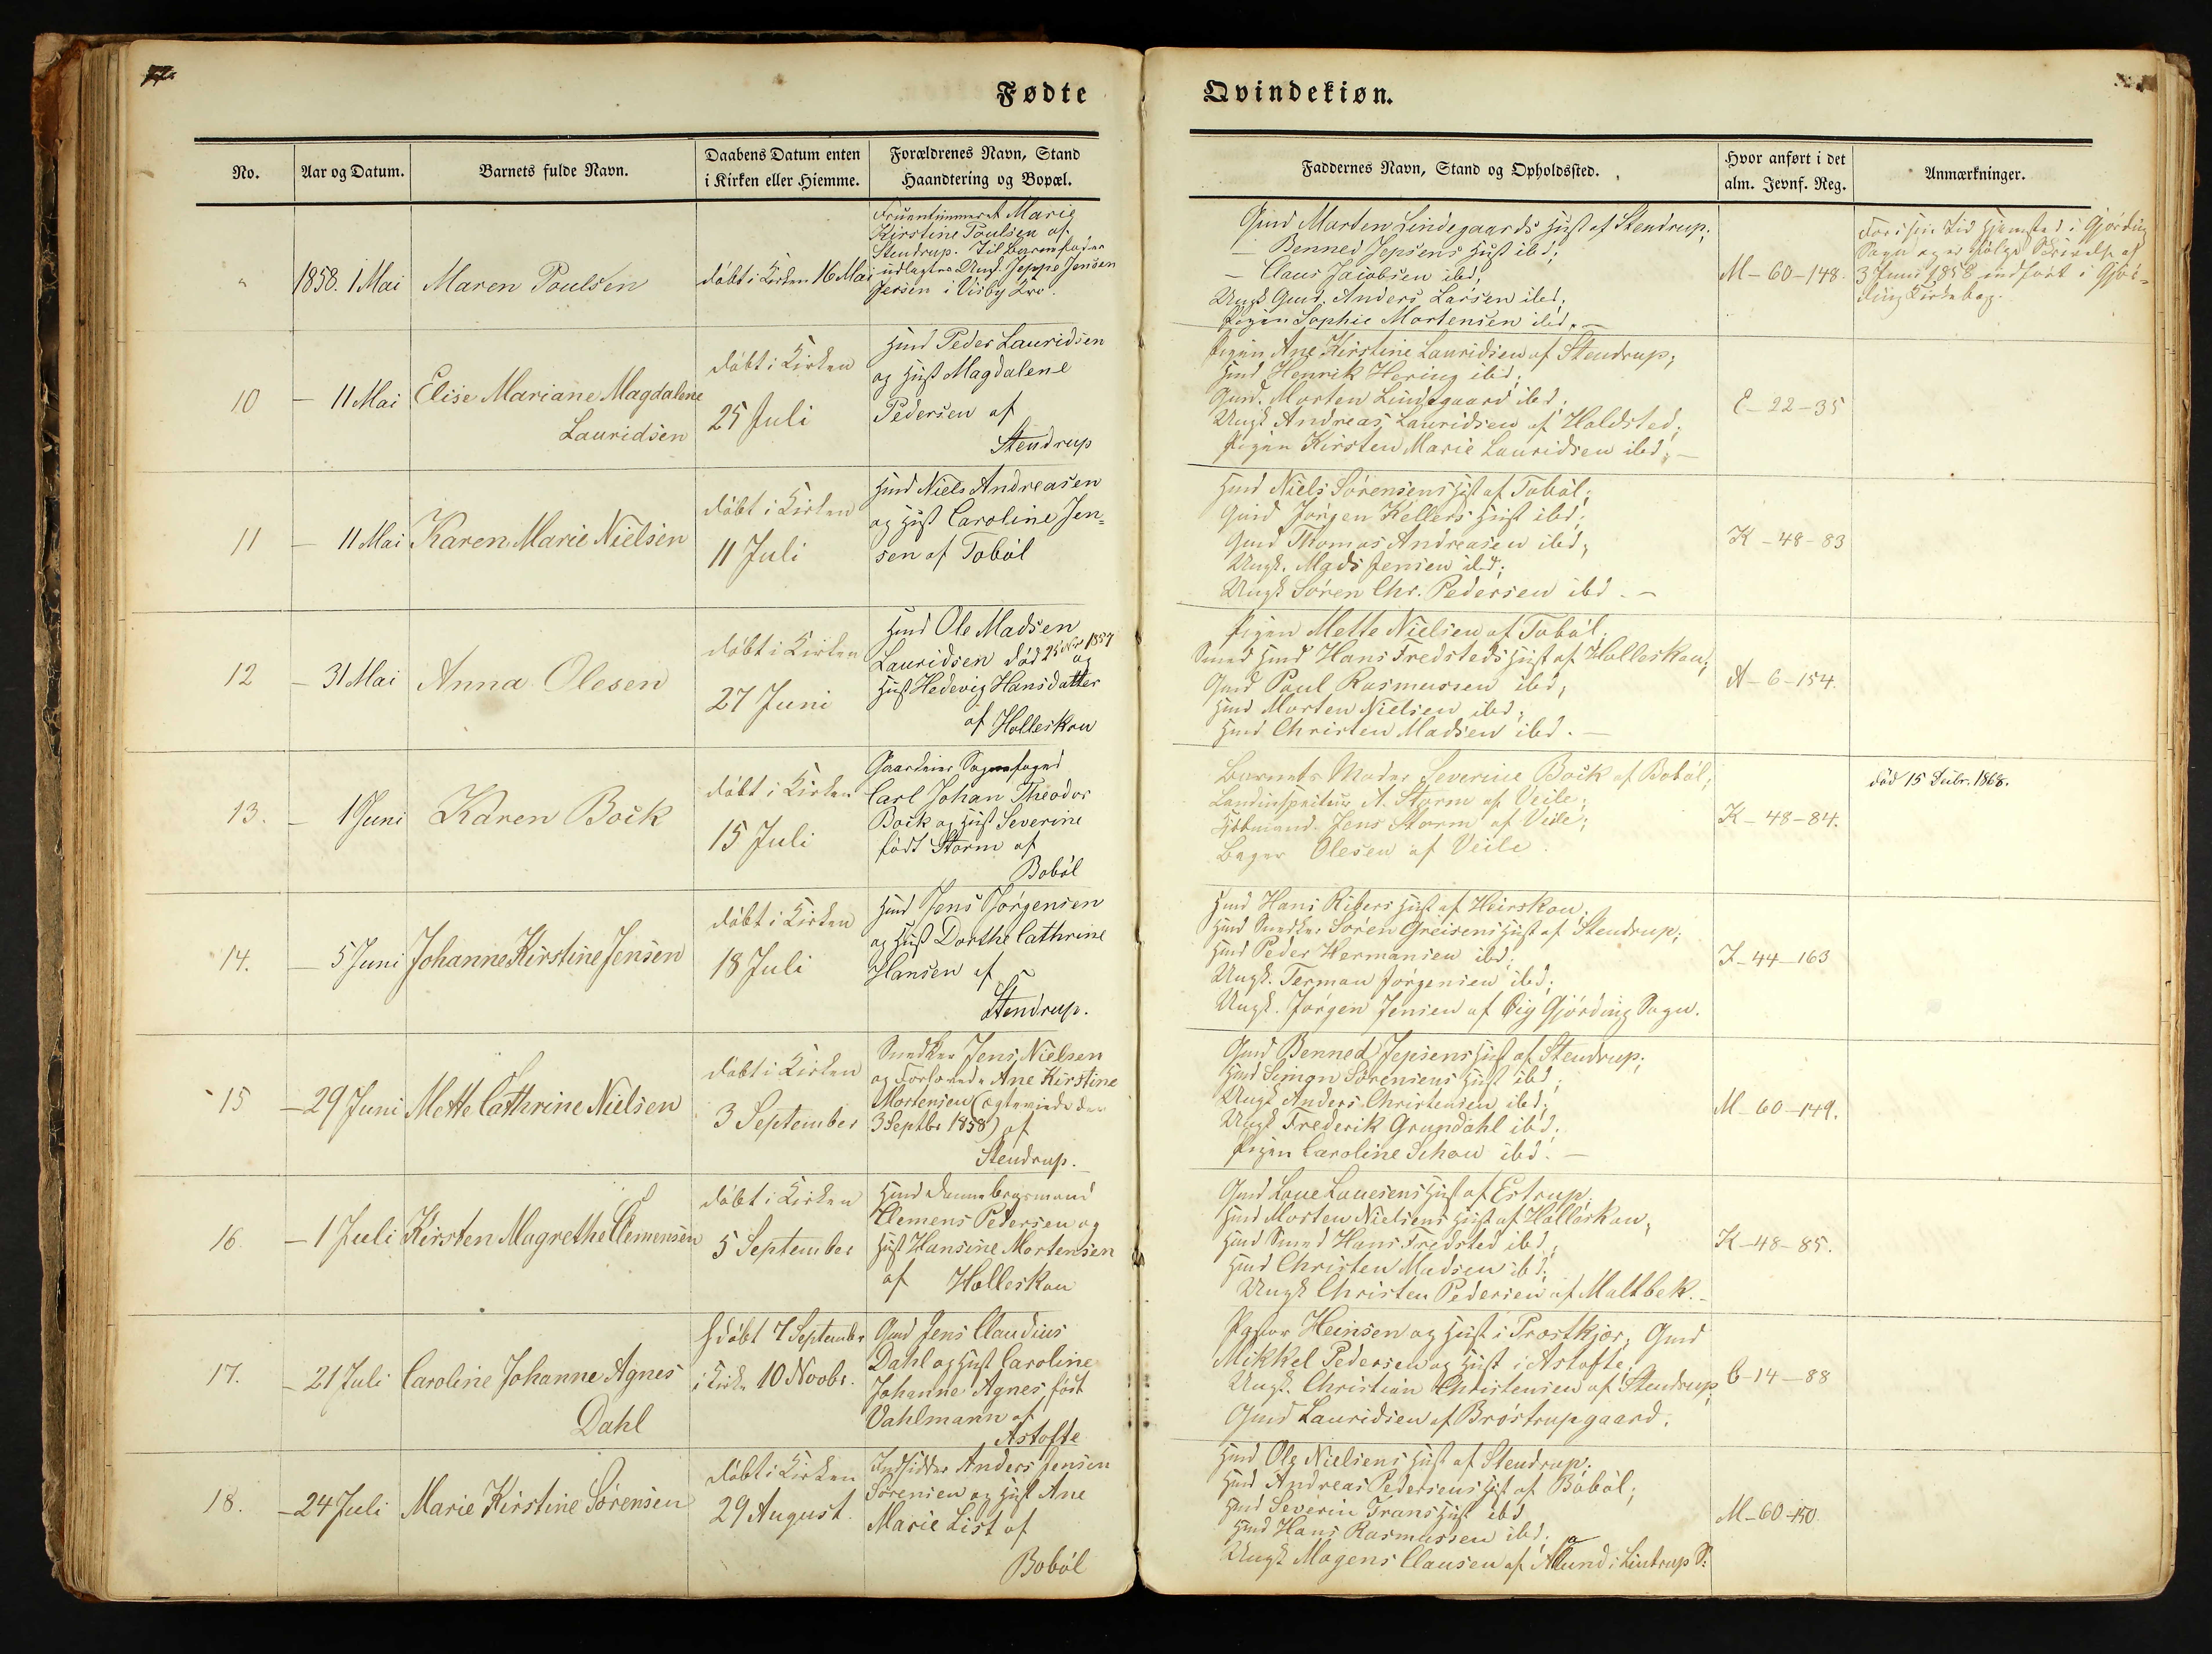 Fødte
Qvindekiøn.
No.
Aar og Datum.
Barnets fulde Navn.
Daabens Datum enten
i Kirken eller Hiemme.
Forældrenes Navn, Stand
Haandtering og Bopæl.
Faddernes Navn, Stand og Opholdssted.
Hvor anført i det
alm. Jevnf. Reg.
Anmærkninger.
"
1858. 1 Mai
Maren Poulsen
døbt i Kirken 16 Mai
Fruentimmeret Marie
Kirstine Poulsen af
Stendrup. Til Barnefader
udlagtes Ungk. Jeppe Jensen
Jersen i Visby Kro.
Gmd Morten Lindegaards Hust af Stendrup;
— Benned Jepsens Hust ibd;
— Claus Jacobsen ibd;
Ungk Gmd. Anders Larsen ibd;
Pigen Sophie Mortensen ibd. —
M-60-148.
3 Juni 1858 indført i Gjør=
ding Kirkebog.
10
— 11 Mai
Elise Mariane Magdalene
Lauridsen
døbt i Kirken
25 Juli
Hmd Peder Lauridsen
og Hust Magdalene
Pedersen af
Stendrup
Pigen Ane Kirstine Lauridsen af Stendrup;
Hmd Henrik Hering ibd;
Gmd. Morten Lindegaard ibd;
Ungk Andreas Lauridsen af Holdsted;
Pigen Kirsten Marie Lauridsen ibd; —
E-22-35
11
— 11 Mai
Karen Marie Nielsen
døbt i Kirken
11 Juli
Hmd Niels Andreasen
og Hust Caroline Jen=
sen af Tobøl
Hmd Niels Sørensens Hust af Tobøl;
Gmd Jørgen Kellers Hust ibd;
Gmd Thomas Andreasen ibd;
Ungk. Mads Jensen ibd;
Ungk Søren Chr. Pedersen ibd. —
K-48-83
12
— 31 Mai
Anna Olesen
døbt i Kirken
27 Juni
Hmd Ole Madsen
Lauridsen død 25 Nvr 1857
og
Hust Hedevig Hansdatter
af Holleskou
Pigen Mette Nielsen af Tobøl,
Smed Hmd Hans Fredsteds Hust af Holleskou;
Gmd Poul Rasmussen ibd;
Hmd Morten Nielsen ibd;
Hmd Christen Madsen ibd. —
A-6-154.
13.
— 1 Juni
Karen Bock
døbt i Kirken
15 Juli
Gaardeier Sognefoged
Carl Johan Theodor
Bock og Hust Severine
født Storm af
Bobøl
Barnets Moder Severine Bock af Bobøl;
Landinspecteur A. Storm af Veile;
Kjøbmand Jens Storm af Veile;
Bager Olesen af Veile.
K-48-84.
død 15 Decbr. 1868.
14.
— 5 Juni
Johanne Kirstine Jensen
døbt i Kirken
18 Juli
Hmd Jens Jørgensen
og Hust Dorthe Cathrine
Hansen af
Stendrup.
Hmd Hans Ribers Hust af Heirskou.
Hmd Snedker Søren Greisens Hust af Stendrup;
Hmd Peder Hermansen ibd;
Ungk. Terman Jørgensen ibd;
Ungk. Jørgen Jensen af Eig Gjørding Sogn.
I-44-163
15
— 29 Juni
Mette Cathrine Nielsen
døbt i Kirken
3 September
Snedker Jens Nielsen
og Forlovede Ane Kirstine
Mortensen (ægteviede den
3 Septbr 1858) af
Stendrup.
Gmd Benned Jepsens Hust af Stendrup;
Hmd Simon Sørensens Hust ibd;
Ungk Anders Christensen ibd;
Ungk Frederik Grundahl ibd;
Pigen Caroline Schou ibd. —
M-60-149.
16.
— 1 Juli
Kirsten Magrethe Clemensen
døbt i Kirken
5 September
Hmd Dannebrogsmand
Clemens Petersen og
Hust Hansine Mortensen
af Holleskou
Gmd Laue Lauesens Hust af Estrup.
Hmd Morten Nielsens Hust af Holleskou;
Hmd Smed Hans Fredsted ibd;
Hmd Christen Madsen ibd;
Ungk Christen Pedersen af Maltbek. —
K-48-85.
17.
— 21 Juli
Caroline Johanne Agnes
Dahl
Hdøbt 7 Septembr
i Kirke 10 Novbr.
Gmd Jens Claudius
Dahl og Hust Caroline
Johanne Agnes, født
Vahlmann af
Astofte
Pastor Heinsen og Hust i Præstkjær, Gmd
Mikkel Pedersen og Hust i Astofte;
Ungk. Christian Christensen af Stendrup;
Gmd Lauridsen af Brøstrupgaard.
C-14-88
18.
— 24 Juli
Marie Kirstine Sørensen
døbt i Kirken
29 August.
Indsidder Anders Jensen
Sørensen og Hust Ane
Marie List af
Bobøl
Hmd Ole Nielsens Hust af Stendrup.
Hmd Andreas Pedersens Hust af Bobøl;
Hmd Severin Frans Hust ibd
Hmd Hans Rasmussen ibd.
Ungk Mogens Clausen af Alund i Lintrup S:
M-60-150